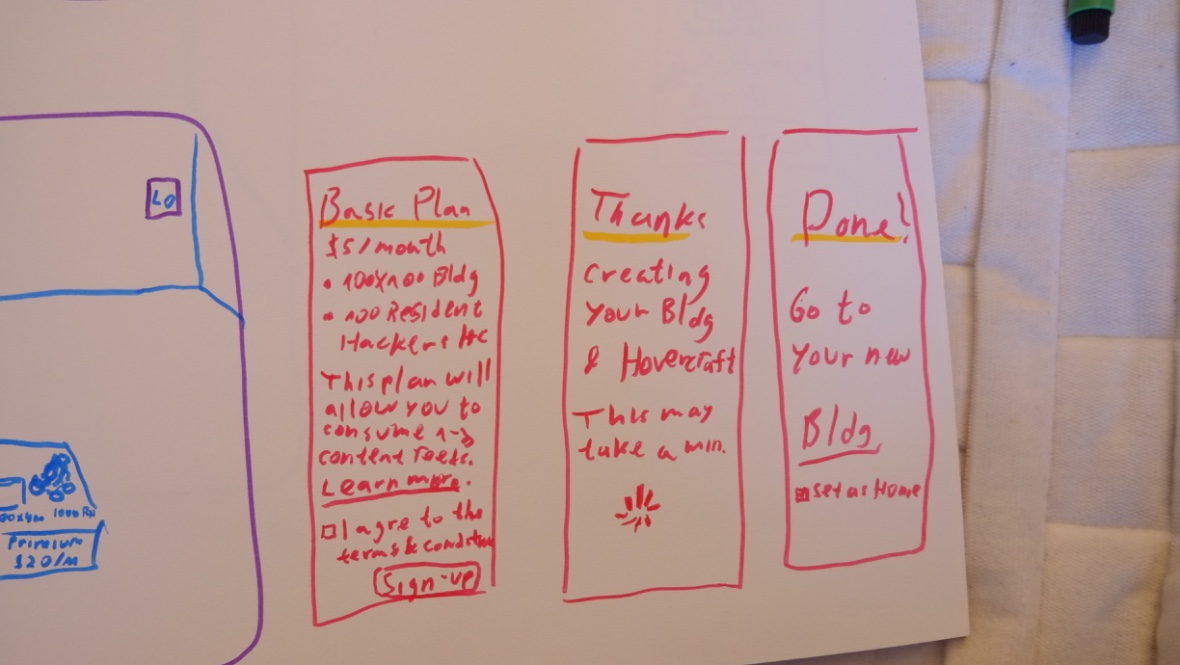 LO
Premium
$20/M
Basic Plan
$5/month
• 100X100 Bldg
• 100 Resident
Hackers
This plan will
allow you to
consume 1-3
content feeds.
Learn more.
I agre to the
terms & condition
Sign-up
Thanks
Creating
Your Bldg
& Hovercraft
This may
take a min.
Done!
Go to
Your new
Bldg.
set as Home